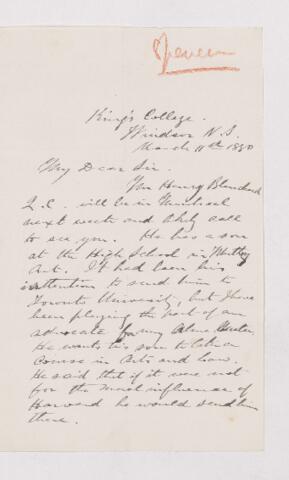 King's College.
Windsor N.S.
March 11th 1890
My Dear Sir.
Mr Henry Blanchard
Q.C. will be in Montreal
next week and likely call
to see you. He has a son
at the High School in Whitby
Ont. It had been his
intention to send him to
Toronto University, but I have
been playing the part of an
advocate for my Alma Mater.
He wants his son to take a
Course in Arts and Law.
He said that if it were not
for the moral influence of
Harvard he would send him
there.